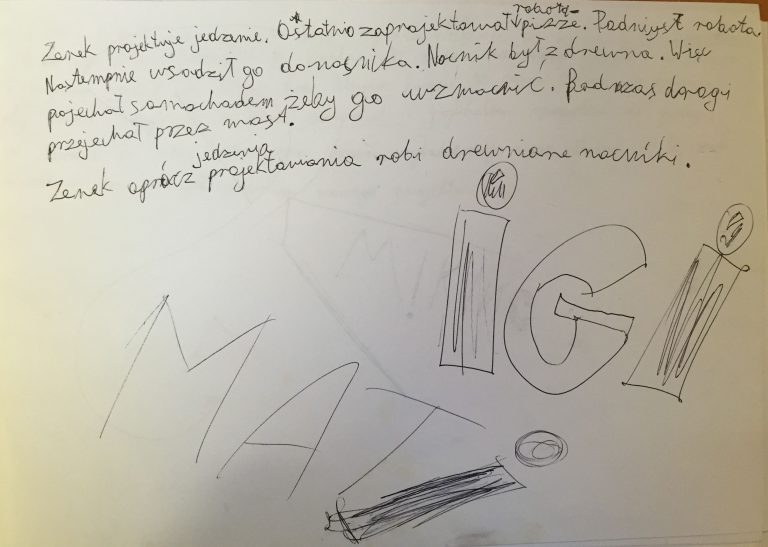 Zenek projektuje jedzenie. Ostatnio zaprojektował robota-pizze. Podniusł robota.
Nastempnie wsadził go do nocnika. Nocnik był z drewna. Więc
pojechał samochodem żeby go wzmocnić. Podczas drogi
przejechał przez most.
Zenek oprócz jedzenia projektowania robi drewniane nocniki.
iGi
MATi